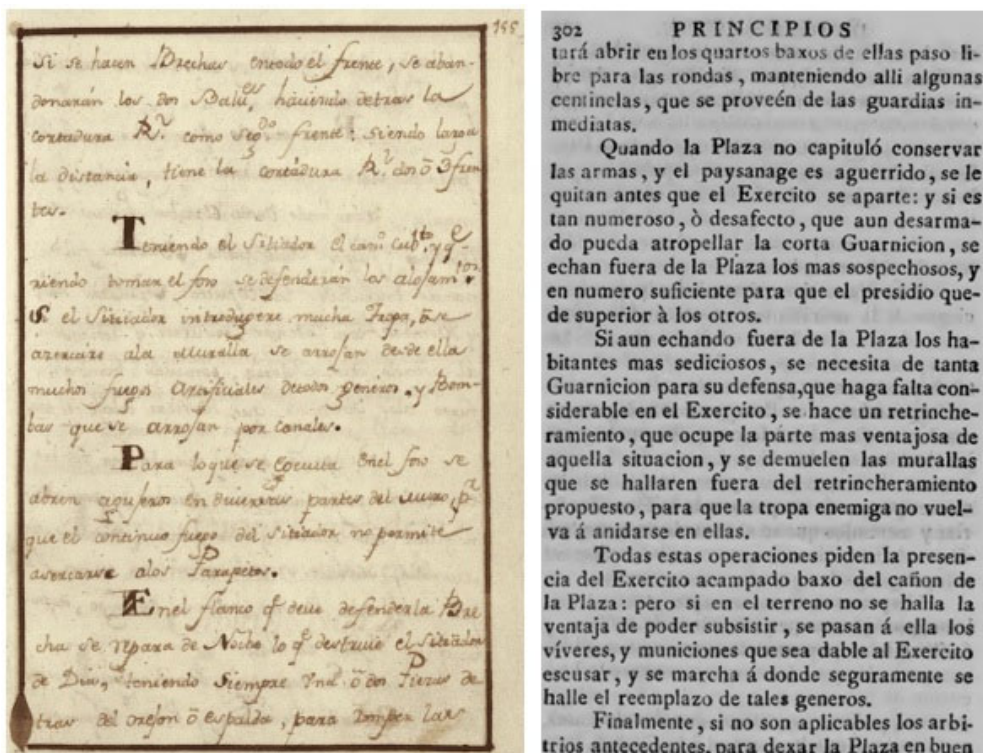 155
Si se hacen Brechas entodo el frente, se aban-
donarán los dos Balu.es, haviendo detras la
cortadura R.l como seg.do frente: siendo larga
la distancia, tiene la cortadura R.l dos ō 3 fren
tes.
Teniendo el Sitiador el cam.o cub.to, y q.e
riendo tomar el foso se defenderán los alojam.tos.
Si el Sitiador introdugere mucha Tropa, ō se
acercare ala Muralla se arrojan desde ella
muchos fuegos Artificiales detodos generos, y Bom-
bas que se arrojan por Canales.
Para loque se Egecuta Enel foso se
abren agujeros en diversas partes del Muro, p.r
que el continuo fuego del Sitiador no permite
asercarse alos Parapetos.
Enel flanco q.e deve defenderla Bre
cha se repara de Noche lo q.e destruie el Sitiador
de Dia, teniendo Siempre Una ō dos Piezas de
tras del orejon ō espalda, para
302 PRINCIPIOS
tará abrir en los quartos baxos de ellas paso li-
bre para las rondas, manteniendo alli algunas
centinelas, que se proveén de las guardias in-
mediatas.
Quando la Plaza no capituló conservar
las armas, y el paysanage es aguerrido, se le
quitan antes que el Exercito se aparte: y si es
tan numeroso, ò desafecto, que aun desarma-
do pueda atropellar la corta Guarnicion, se
echan fuera de la Plaza los mas sospechosos, y
en numero suficiente para que el presidio que-
de superior à los otros.
Si aun echando fuera de la Plaza los ha-
bitantes mas sediciosos, se necesita de tanta
Guarnicion para su defensa,que haga falta con-
siderable en el Exercito, se hace un retrinche-
ramiento, que ocupe la parte mas ventajosa de
aquella situacion, y se demuelen las murallas
que se hallaren fuera del retrincheramiento
propuesto, para que la tropa enemiga no vuel-
va á anidarse en ellas.
Todas estas operaciones piden la presen-
cia del Exercito acampado baxo del cañon de
la Plaza: pero si en el terreno no se halla la
ventaja de poder subsistir, se pasan á ella los
víveres, y municiones que sea dable al Exercito
escusar, y se marcha á donde seguramente se
halle el reemplazo de tales generos.
Finalmente, si no son aplicables los arbi-
trios antecedentes, para dexar la Plaza en buen